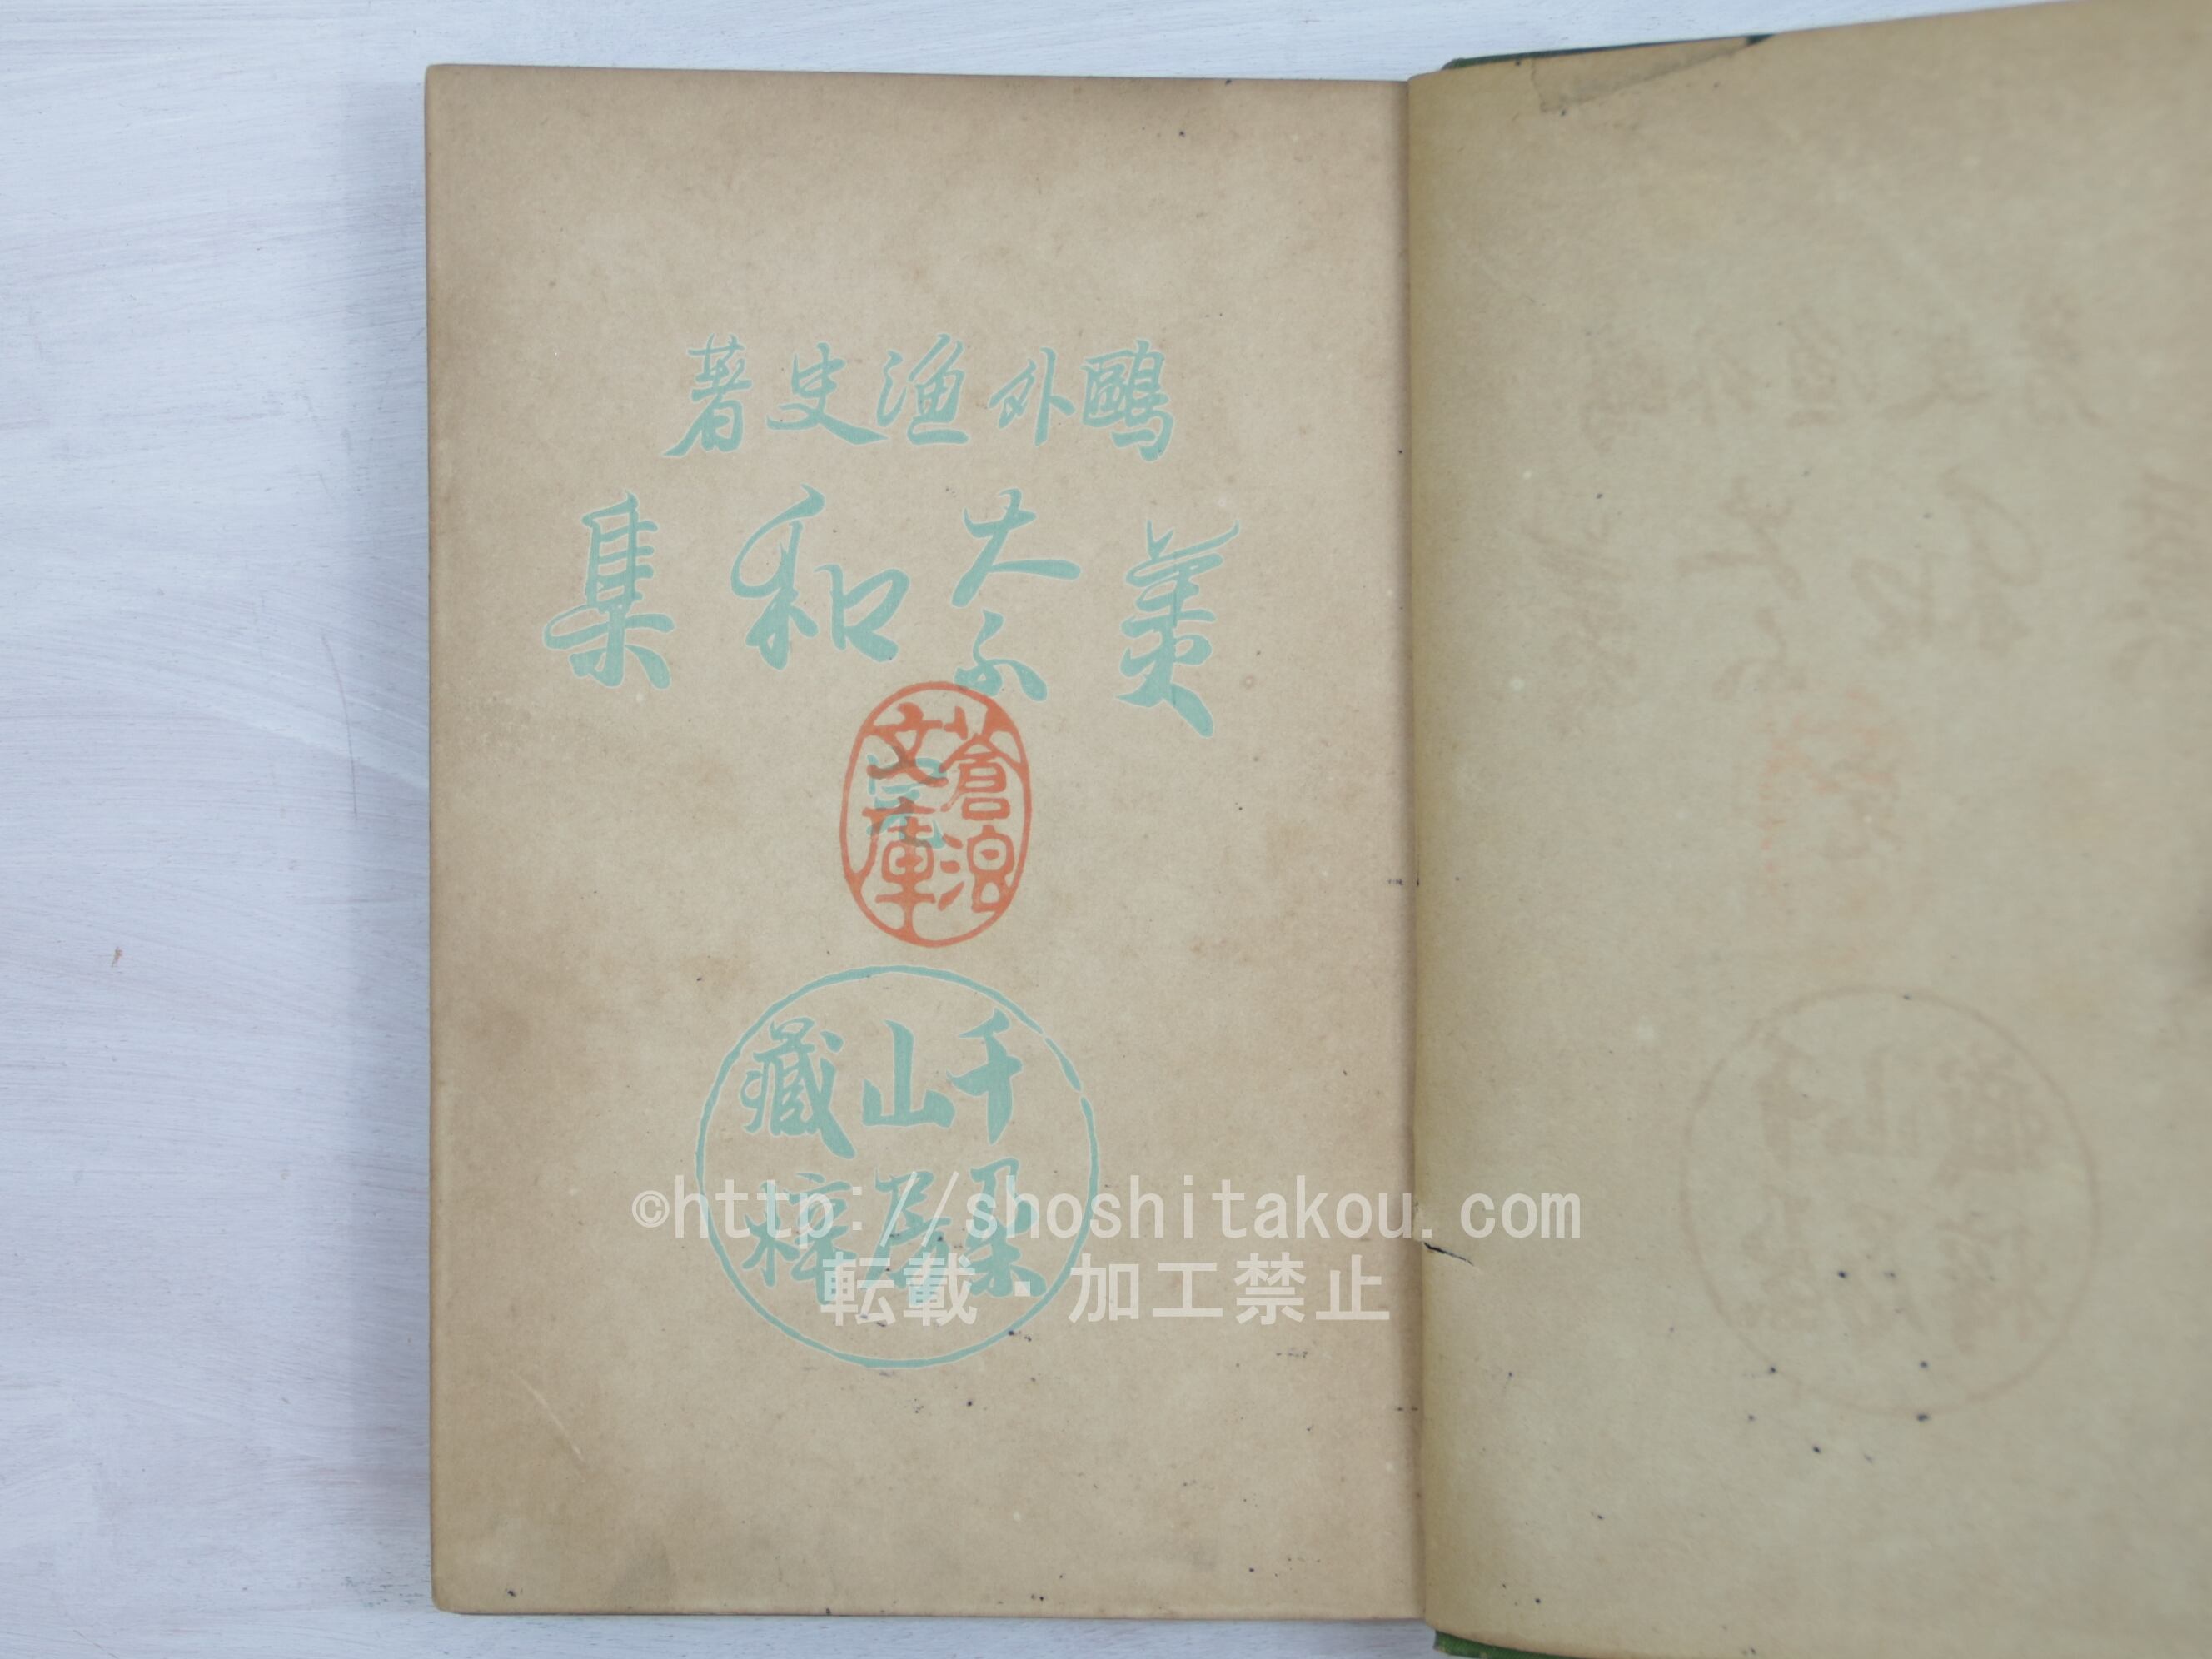 鷗外漁史著
美奈和集
完
蒼浪
文庫
千朶
山房
藏梓
©http://shoshitakou.com
転載・加工禁止